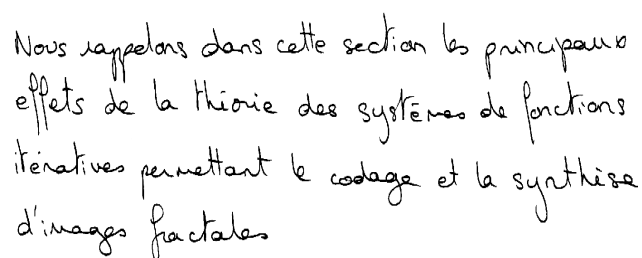 Nous rappelons dans cette section les principaux
effets de la théorie des systèmes de fonctions
itératives permettant le codage et la synthèse
d'images fractales